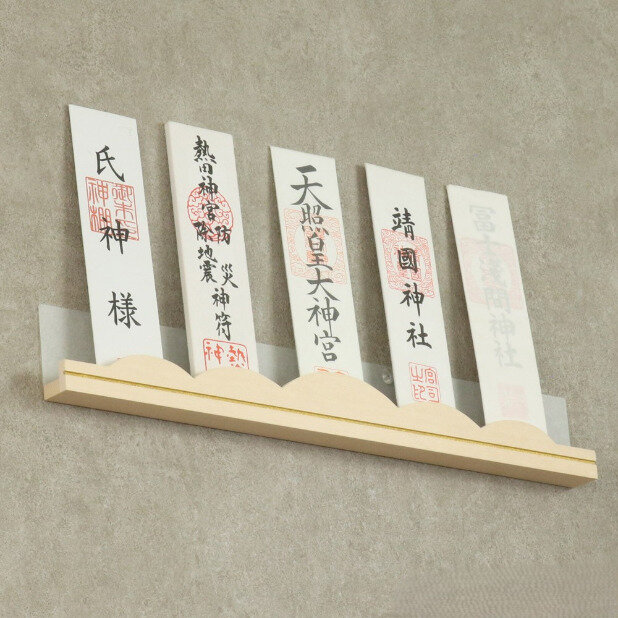 氏神様
熱田神宮
防災
除地震
神符
天照皇大神宮
靖國神社
冨士浅間神社